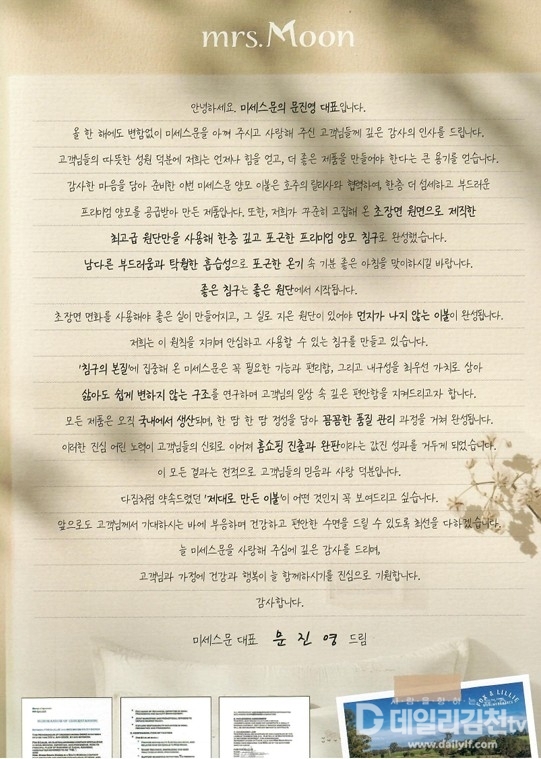 mrs.Moon
안녕하세요. 미세스문의 문진영 대표입니다.
올 한 해에도 변함없이 미세스문을 아껴 주시고 사랑해 주신 고객님들께 깊은 감사의 인사를 드립니다.
고객님들의 따뜻한 성원 덕분에 저희는 언제나 힘을 얻고, 더 좋은 제품을 만들어야 한다는 큰 용기를 얻습니다.
감사한 마음을 담아 준비한 이번 미세스문 양모 이불은 호주의 릴리사와 협력하여, 한층 더 섬세하고 부드러운
프리미엄 양모를 공급받아 만든 제품입니다. 또한, 저희가 꾸준히 고집해 온 초장면 원면으로 제작한
최고급 원단만을 사용해 한층 깊고 포근한 프리미엄 양모 침구로 완성했습니다.
남다른 부드러움과 탁월한 흡습성으로 포근한 온기 속 기분 좋은 아침을 맞이하시길 바랍니다.
좋은 침구는 좋은 원단에서 시작됩니다.
초장면 면화를 사용해야 좋은 실이 만들어지고, 그 실로 지은 원단이 있어야 먼지가 나지 않는 이불이 완성됩니다.
저희는 이 원칙을 지키며 안심하고 사용할 수 있는 침구를 만들고 있습니다.
'침구의 본질'에 집중해 온 미세스문은 꼭 필요한 기능과 편리함, 그리고 내구성을 최우선 가치로 삼아
삶아도 쉽게 변하지 않는 구조를 연구하며 고객님의 일상 속 깊은 편안함을 지켜드리고자 합니다.
모든 제품은 오직 국내에서 생산되며, 한 땀 한 땀 정성을 담아 꼼꼼한 품질 관리 과정을 거쳐 완성됩니다.
이러한 진심 어린 노력이 고객님들의 신뢰로 이어져 홈쇼핑 진출과 완판이라는 값진 성과를 거두게 되었습니다.
이 모든 결과는 전적으로 고객님들의 믿음과 사랑 덕분입니다.
다짐처럼 약속드렸던 '제대로 만든 이불'이 어떤 것인지 꼭 보여드리고 싶습니다.
앞으로도 고객님께서 기대하시는 바에 부응하며 건강하고 편안한 수면을 드릴 수 있도록 최선을 다하겠습니다.
늘 미세스문을 사랑해 주심에 깊은 감사를 드리며,
고객님과 가정에 건강과 행복이 늘 함께하시기를 진심으로 기원합니다.
감사합니다.
미세스문 대표 문 진 영 드림
MEMORANDUM OF UNDERSTANDING
데일리김천tv
www.dailylf.com